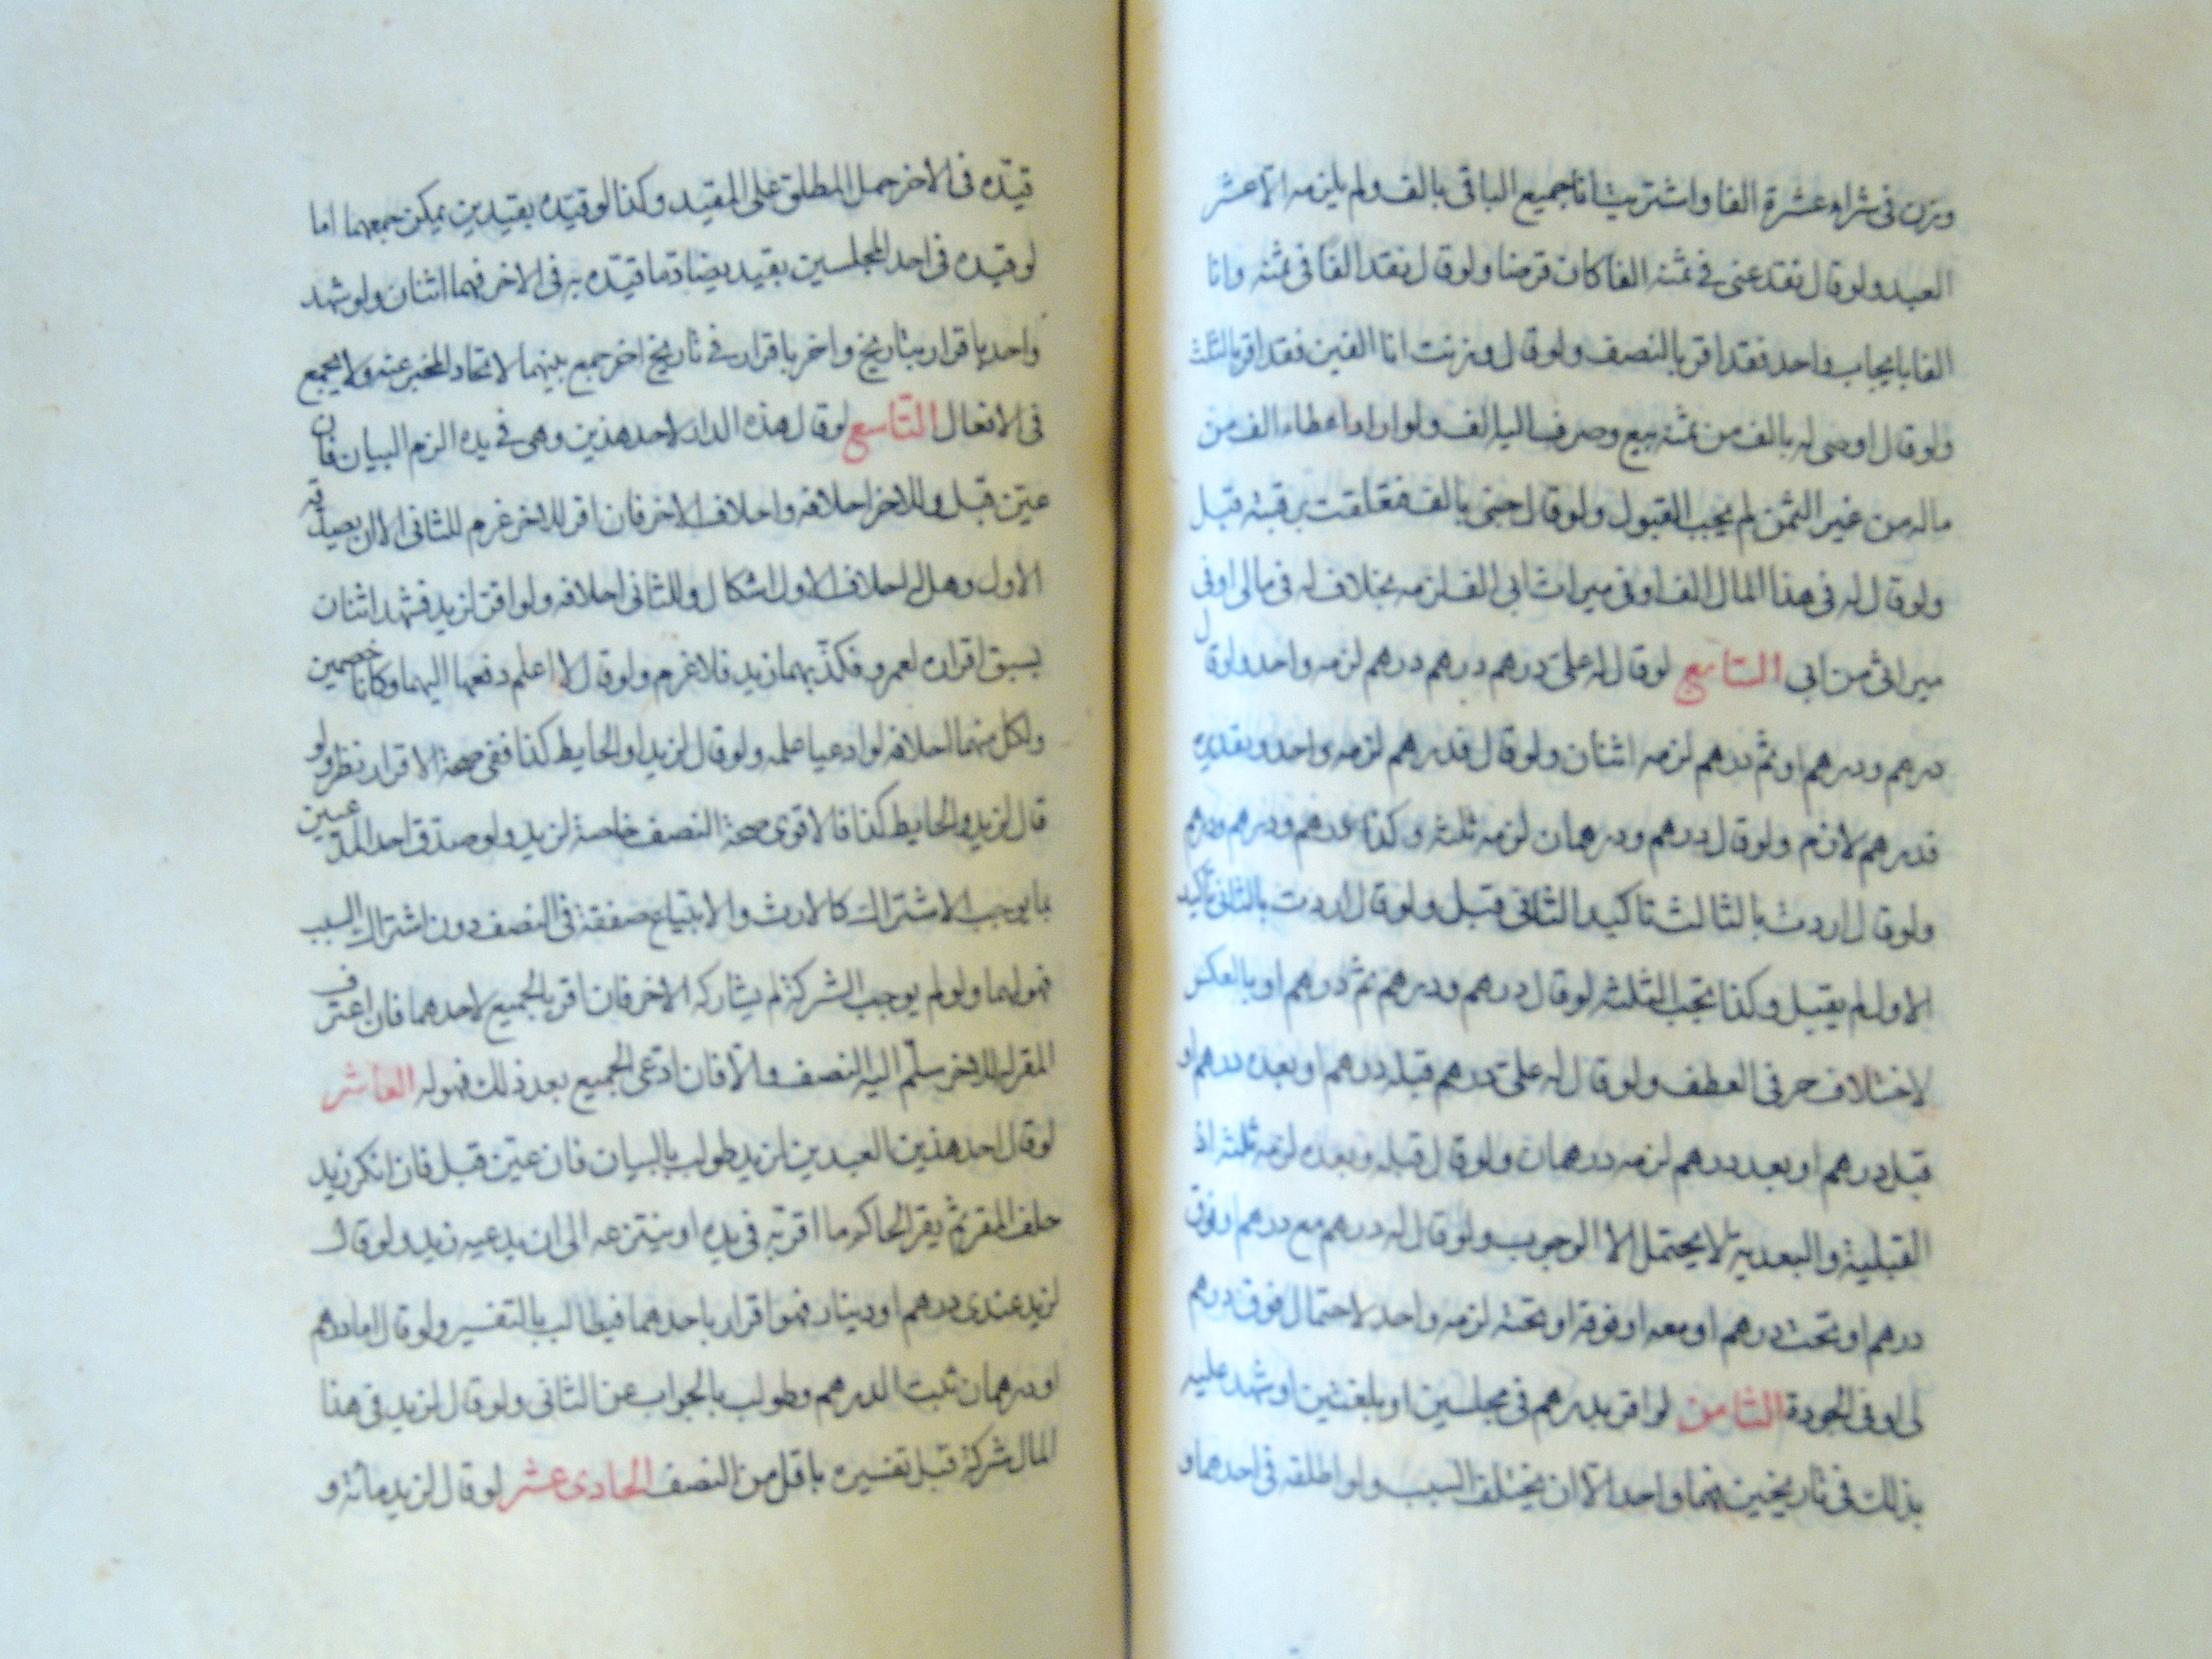 وزن فى شراء عشرة الفا واشتريت انا جميع الباقى بالف ولم يلزمه الا عشر
العبد ولو قال نقد عنى فى ثمنه الفا كان قرضا ولو قال نقد الفا فى ثمنه وانا
الفا بايجاب واحد فقد اقر بالنصف ولو قال وزنت انا الفين فقد اقر بالثلث
ولو قال اوصى له بالف من ثمنه بيع وصرف اليه الف ولو اراد اعطاء الف من
ماله من غير الثمن لم يجب القبول ولو قال جنى بالف فتعلقت برقبته قبل
ولو قال له فى هذا المال الف او فى ميراث ابى الف لزمه بخلاف له فى مالى او فى
ميراثى من ابى السابع لو قال له علىّ درهم درهم درهم لزمه واحد ولو قال
درهم ودرهم او ثم درهم لزمه اثنان ولو قال فدرهم لزمه واحد وبتقديره
فدرهم لازم ولو قال درهم ودرهمان لزمه ثلثة وكذا درهم ودرهم ودرهم
ولو قال اردت بالثالث تاكيد الثانى قبل ولو قال اردت بالثانى تاكيد
الاول لم يقبل وكذا تجب الثلثة لو قال درهم ودرهم ثم درهم او بالعكس
لاختلاف حرفى العطف ولو قال له علىّ درهم قبله درهم او بعده درهم او
قبل درهم او بعد درهم لزمه درهمان ولو قال قبله وبعده لزمه ثلثة اذ
القبلية والبعدية لا يحتمل الا الوجوب ولو قال له درهم مع درهم او فوق
درهم او تحت درهم او معه او فوقه او تحته لزمه واحد لاحتمال فوق درهم
لى او فى الجودة الثامن لو اقر بدرهم فى مجلسين او بلغتين او شهد عليه
بذلك فى تاريخين فهما واحد الا ان يختلف السبب ولو اطلقه فى احدهما و
قيّده فى الاخر حمل المطلق على المقيد وكذا لو قيّده بقيدين يمكن جمعهما اما
لو قيده فى احد المجلسين بقيد يضادّ ما قيّده به فى الاخر فهما اثنان ولو شهد
واحد باقرار بتاريخ واخر باقرار فى تاريخ اخر جمع بينهما لاتحاد المخبر عنه ولا يجمع
فى الافعال التّاسع لو قال هذه الدار لاحد هذين وهى فى يده الزم البيان فان
عيّن قبل وللاخر احلافه واحلاف الاخر فان اقر للاخر غرم للثانى الا ان يصدقه
الاول وهل له احلاف الاول اشكال وللثانى احلافه ولو اقر لزيد فشهد اثنان
بسبق اقراره لعمرو فكذّبهما زيد فلا غرم ولو قال لا اعلم دفعها اليهما وكانا خصمين
ولكل منهما احلافه لو ادعيا علمه ولو قال لزيد او الحايط كذا ففى صحة الاقرار نظر ولو
قال لزيد والحايط كذا فالاقوى صحة النصف خاصة لزيد ولو صدّق احد المدعيين
بما يوجب الاشتراك كالارث والابتياع صفقة فى النصف دون اشتراك السبب
فهو لهما ولو لم يوجب الشركة لم يشاركه الاخر فان اقر بالجميع لاحدهما فان اعترف
المقر له للاخر سلّم اليه النصف والّا فان ادّعى الجميع بعد ذلك فهو له العاشر
لو قال احد هذين العبدين لزيد طولب بالبيان فان عيّن قبل فان انكر زيد
حلف المقر ثم يقر الحاكم ما اقر به فى يده او ينتزعه الى ان يدعيه زيد ولو قال
لزيد عندى درهم او دينار فهو اقرار باحدهما فيطالب بالتفسير ولو قال اما درهم
او درهمان ثبت الدرهم وطولب بالجواب عن الثانى ولو قال لزيد فى هذا
المال شركة قبل تفسيره باقل من النصف الحادى عشر لو قال لزيد مائة و